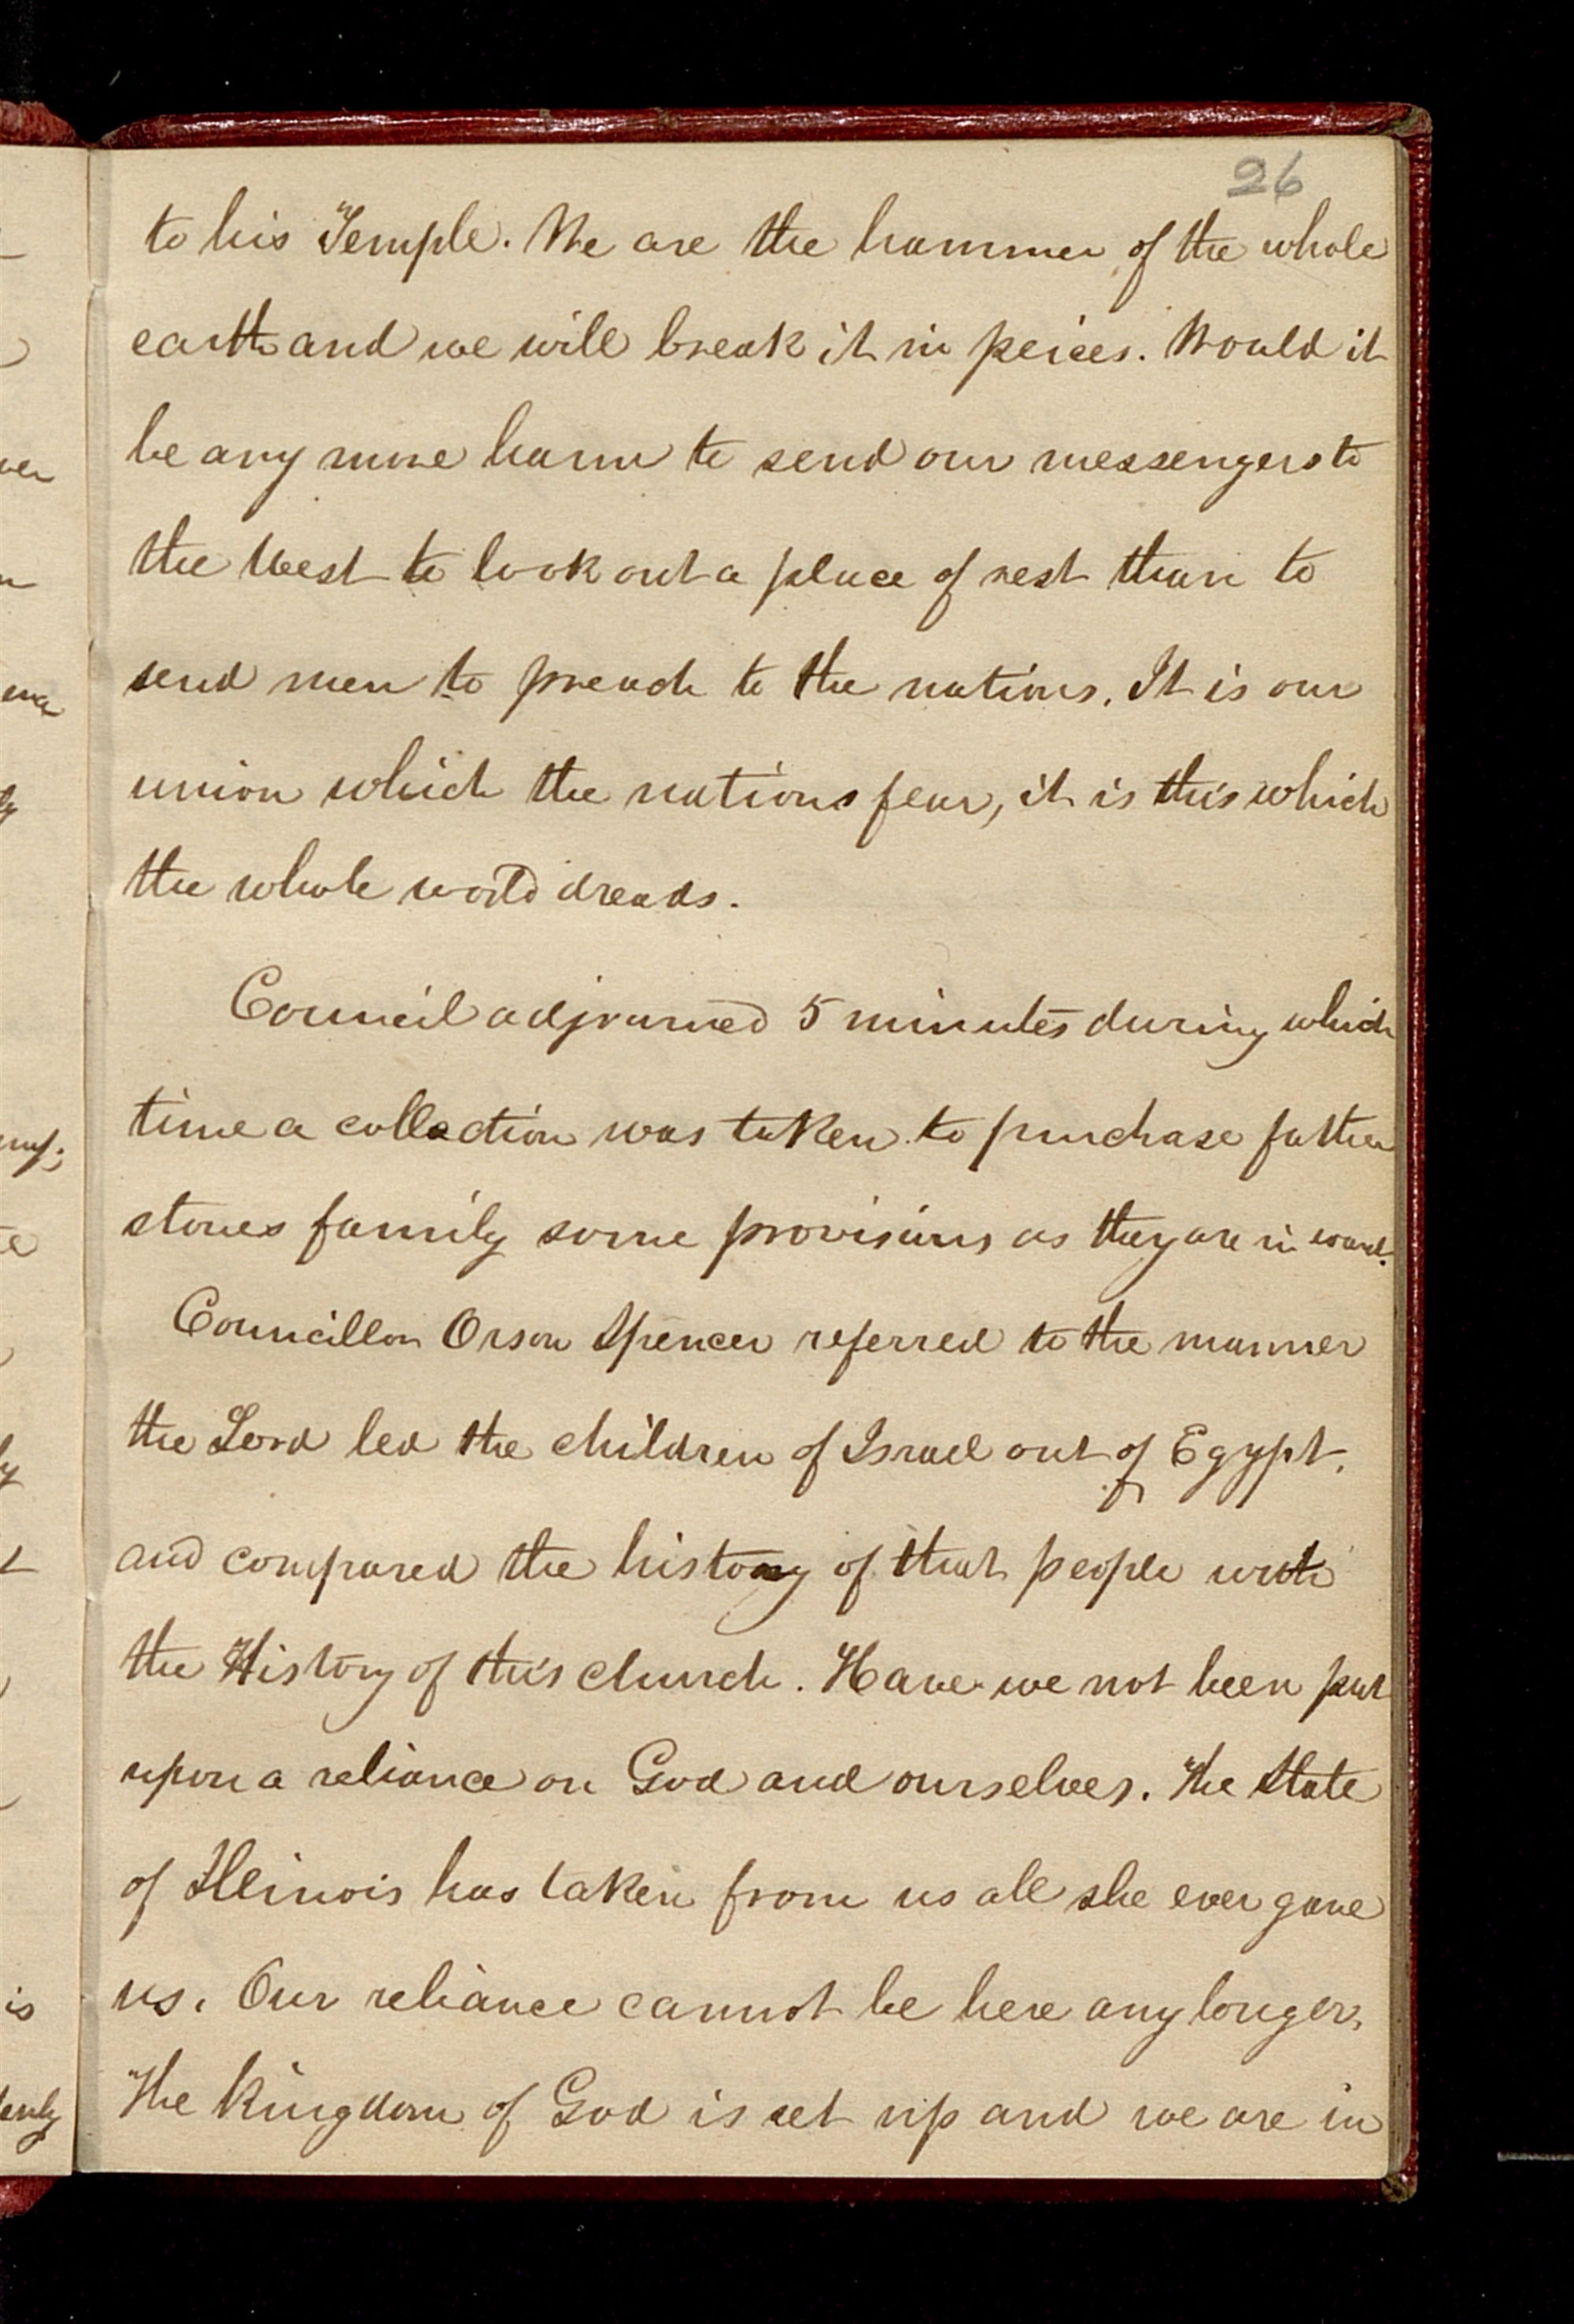 26
to his Temple. We are the hammer of the whole
earth and we will break it in peices. Would it
be any more harm to send our messengers to
the West to look out a place of rest than to
send men to preach to the nations. It is our
union which the nations fear, it is this which
the whole world dreads.
Council adjourned 5 minutes during which
time a collection was taken to purchase father
stones family some provisions as they are in want.
Councillor Orson Spencer referred to the manner
the Lord led the children of Israel out of Egypt.
and compared the history of that people with
the History of this church. Have we not been put
upon a reliance on God and ourselves. The State
of Illinois has taken from us all she ever gave
us. Our reliance cannot be here any longer,
The Kingdom of God is set up and we are in